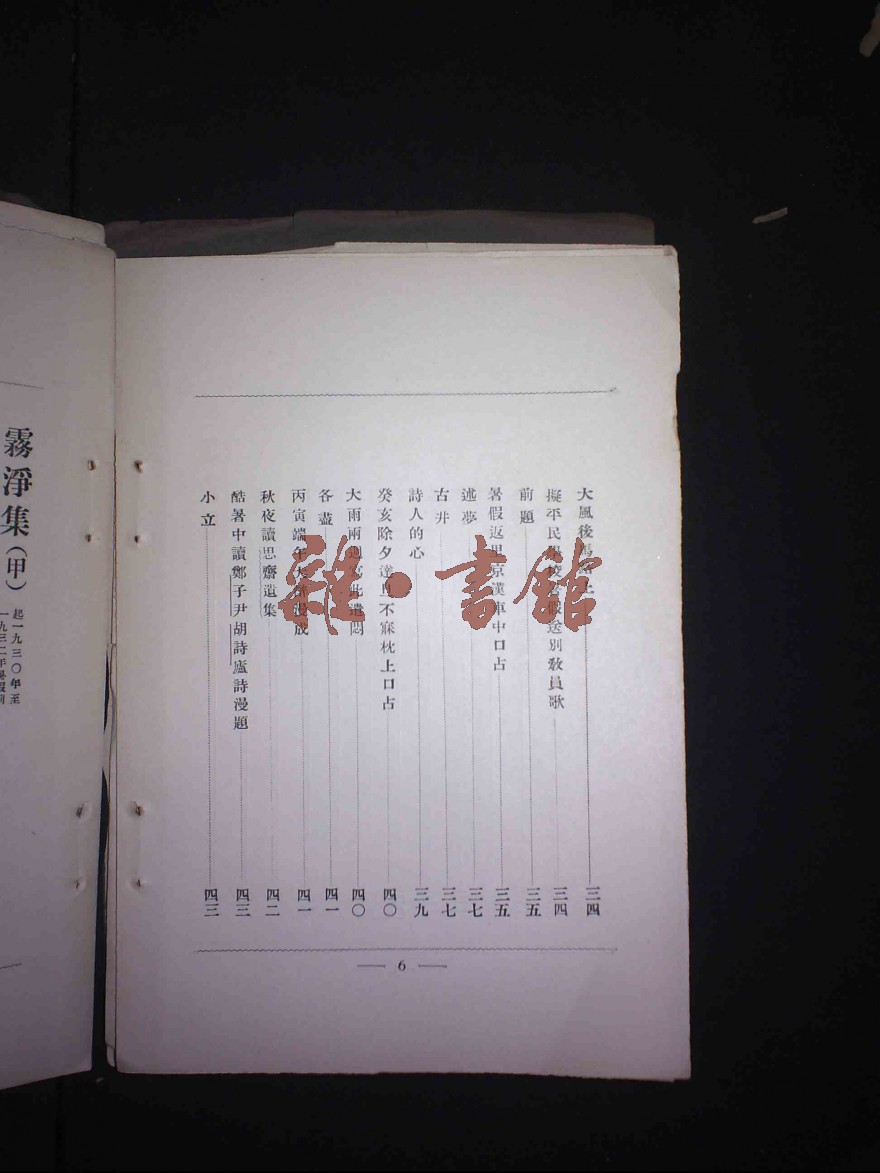 大風後馬路上 三四
擬平民學校暑假送別教員歌 三四
前題 三五
暑假返里京漢車中口占 三五
述夢 三七
古井 三七
詩人的心 三九
癸亥除夕達旦不寐枕上口占 四〇
大雨兩週寫此遣悶 四〇
各盡 四一
丙寅端午大醉漫成 四一
秋夜讀思齋遺集 四二
酷暑中讀鄭子尹胡詩廬詩漫題 四三
小立 四三
— 6 —
霧淨集(甲)
起一九三〇年至
一九三二年暑假前
雜·書館